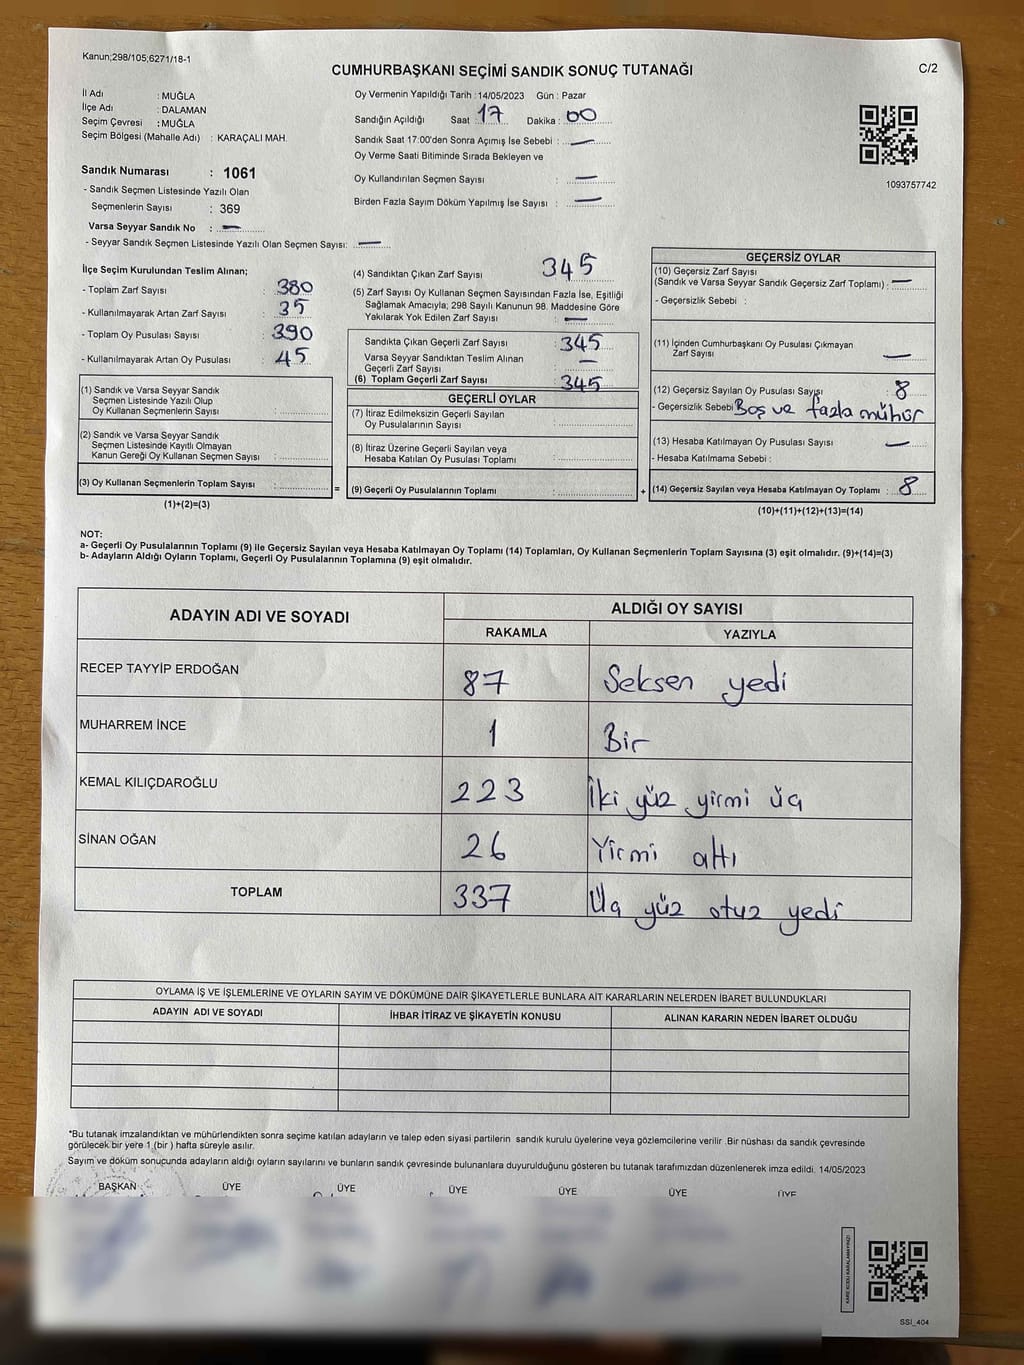 Kanun;298/105;6271/18-1
CUMHURBAŞKANI SEÇİMİ SANDIK SONUÇ TUTANAĞI
C/2
İl Adı : MUĞLA
İlçe Adı : DALAMAN
Seçim Çevresi : MUĞLA
Seçim Bölgesi (Mahalle Adı) : KARAÇALI MAH.
Sandık Numarası : 1061
- Sandık Seçmen Listesinde Yazılı Olan
Seçmenlerin Sayısı : 369
Varsa Seyyar Sandık No : —
- Seyyar Sandık Seçmen Listesinde Yazılı Olan Seçmen Sayısı: —
Oy Vermenin Yapıldığı Tarih :14/05/2023 Gün : Pazar
Sandığın Açıldığı Saat : 17 Dakika : 00
Sandık Saat 17:00'den Sonra Açımış İse Sebebi : —
Oy Verme Saati Bitiminde Sırada Bekleyen ve
Oy Kullandırılan Seçmen Sayısı : —
Birden Fazla Sayım Döküm Yapılmış İse Sayısı : —
1093757742
İlçe Seçim Kurulundan Teslim Alınan;
- Toplam Zarf Sayısı : 380
- Kullanılmayarak Artan Zarf Sayısı : 35
- Toplam Oy Pusulası Sayısı : 390
- Kullanılmayarak Artan Oy Pusulası : 45
(1) Sandık ve Varsa Seyyar Sandık
Seçmen Listesinde Yazılı Olup
Oy Kullanan Seçmenlerin Sayısı :
(2) Sandık ve Varsa Seyyar Sandık
Seçmen Listesinde Kayıtlı Olmayan
Kanun Gereği Oy Kullanan Seçmen Sayısı :
(3) Oy Kullanan Seçmenlerin Toplam Sayısı :
(1)+(2)=(3)
=
(4) Sandıktan Çıkan Zarf Sayısı 345
(5) Zarf Sayısı Oy Kullanan Seçmen Sayısından Fazla İse, Eşitliği
Sağlamak Amacıyla; 298 Sayılı Kanunun 98. Maddesine Göre
Yakılarak Yok Edilen Zarf Sayısı : —
Sandıkta Çıkan Geçerli Zarf Sayısı : 345
Varsa Seyyar Sandıktan Teslim Alınan
Geçerli Zarf Sayısı : —
(6) Toplam Geçerli Zarf Sayısı : 345
GEÇERLİ OYLAR
(7) İtiraz Edilmeksizin Geçerli Sayılan
Oy Pusulalarının Sayısı :
(8) İtiraz Üzerine Geçerli Sayılan veya
Hesaba Katılan Oy Pusulası Toplamı :
(9) Geçerli Oy Pusulalarının Toplamı :
+
GEÇERSİZ OYLAR
(10) Geçersiz Zarf Sayısı
(Sandık ve Varsa Seyyar Sandık Geçersiz Zarf Toplamı) : —
- Geçersizlik Sebebi :
(11) İçinden Cumhurbaşkanı Oy Pusulası Çıkmayan
Zarf Sayısı : —
(12) Geçersiz Sayılan Oy Pusulası Sayısı : 8
- Geçersizlik Sebebi Boş ve fazla mühür
(13) Hesaba Katılmayan Oy Pusulası Sayısı : —
- Hesaba Katılmama Sebebi :
(14) Geçersiz Sayılan veya Hesaba Katılmayan Oy Toplamı : 8
(10)+(11)+(12)+(13)=(14)
NOT:
a- Geçerli Oy Pusulalarının Toplamı (9) ile Geçersiz Sayılan veya Hesaba Katılmayan Oy Toplamı (14) Toplamları, Oy Kullanan Seçmenlerin Toplam Sayısına (3) eşit olmalıdır. (9)+(14)=(3)
b- Adayların Aldığı Oyların Toplamı, Geçerli Oy Pusulalarının Toplamına (9) eşit olmalıdır.
ADAYIN ADI VE SOYADI
ALDIĞI OY SAYISI
RAKAMLA YAZIYLA
RECEP TAYYİP ERDOĞAN 87 Seksen yedi
MUHARREM İNCE 1 Bir
KEMAL KILIÇDAROĞLU 223 İki yüz yirmi üç
SİNAN OĞAN 26 Yirmi altı
TOPLAM 337 Üç yüz otuz yedi
OYLAMA İŞ VE İŞLEMLERİNE VE OYLARIN SAYIM VE DÖKÜMÜNE DAİR ŞİKAYETLERLE BUNLARA AİT KARARLARIN NELERDEN İBARET BULUNDUKLARI
ADAYIN ADI VE SOYADI İHBAR İTİRAZ VE ŞİKAYETİN KONUSU ALINAN KARARIN NEDEN İBARET OLDUĞU
*Bu tutanak imzalandıktan ve mühürlendikten sonra seçime katılan adayların ve talep eden siyasi partilerin sandık kurulu üyelerine veya gözlemcilerine verilir .Bir nüshası da sandık çevresinde
görülecek bir yere 1 (bir ) hafta süreyle asılır.
Sayım ve döküm sonucunda adayların aldığı oyların sayılarını ve bunların sandık çevresinde bulunanlara duyurulduğunu gösteren bu tutanak tarafımızdan düzenlenerek imza edildi. 14/05/2023
BAŞKAN ÜYE ÜYE ÜYE ÜYE ÜYE ÜYE
KARE KODU KARALAMAYINIZ!
SSİ_404